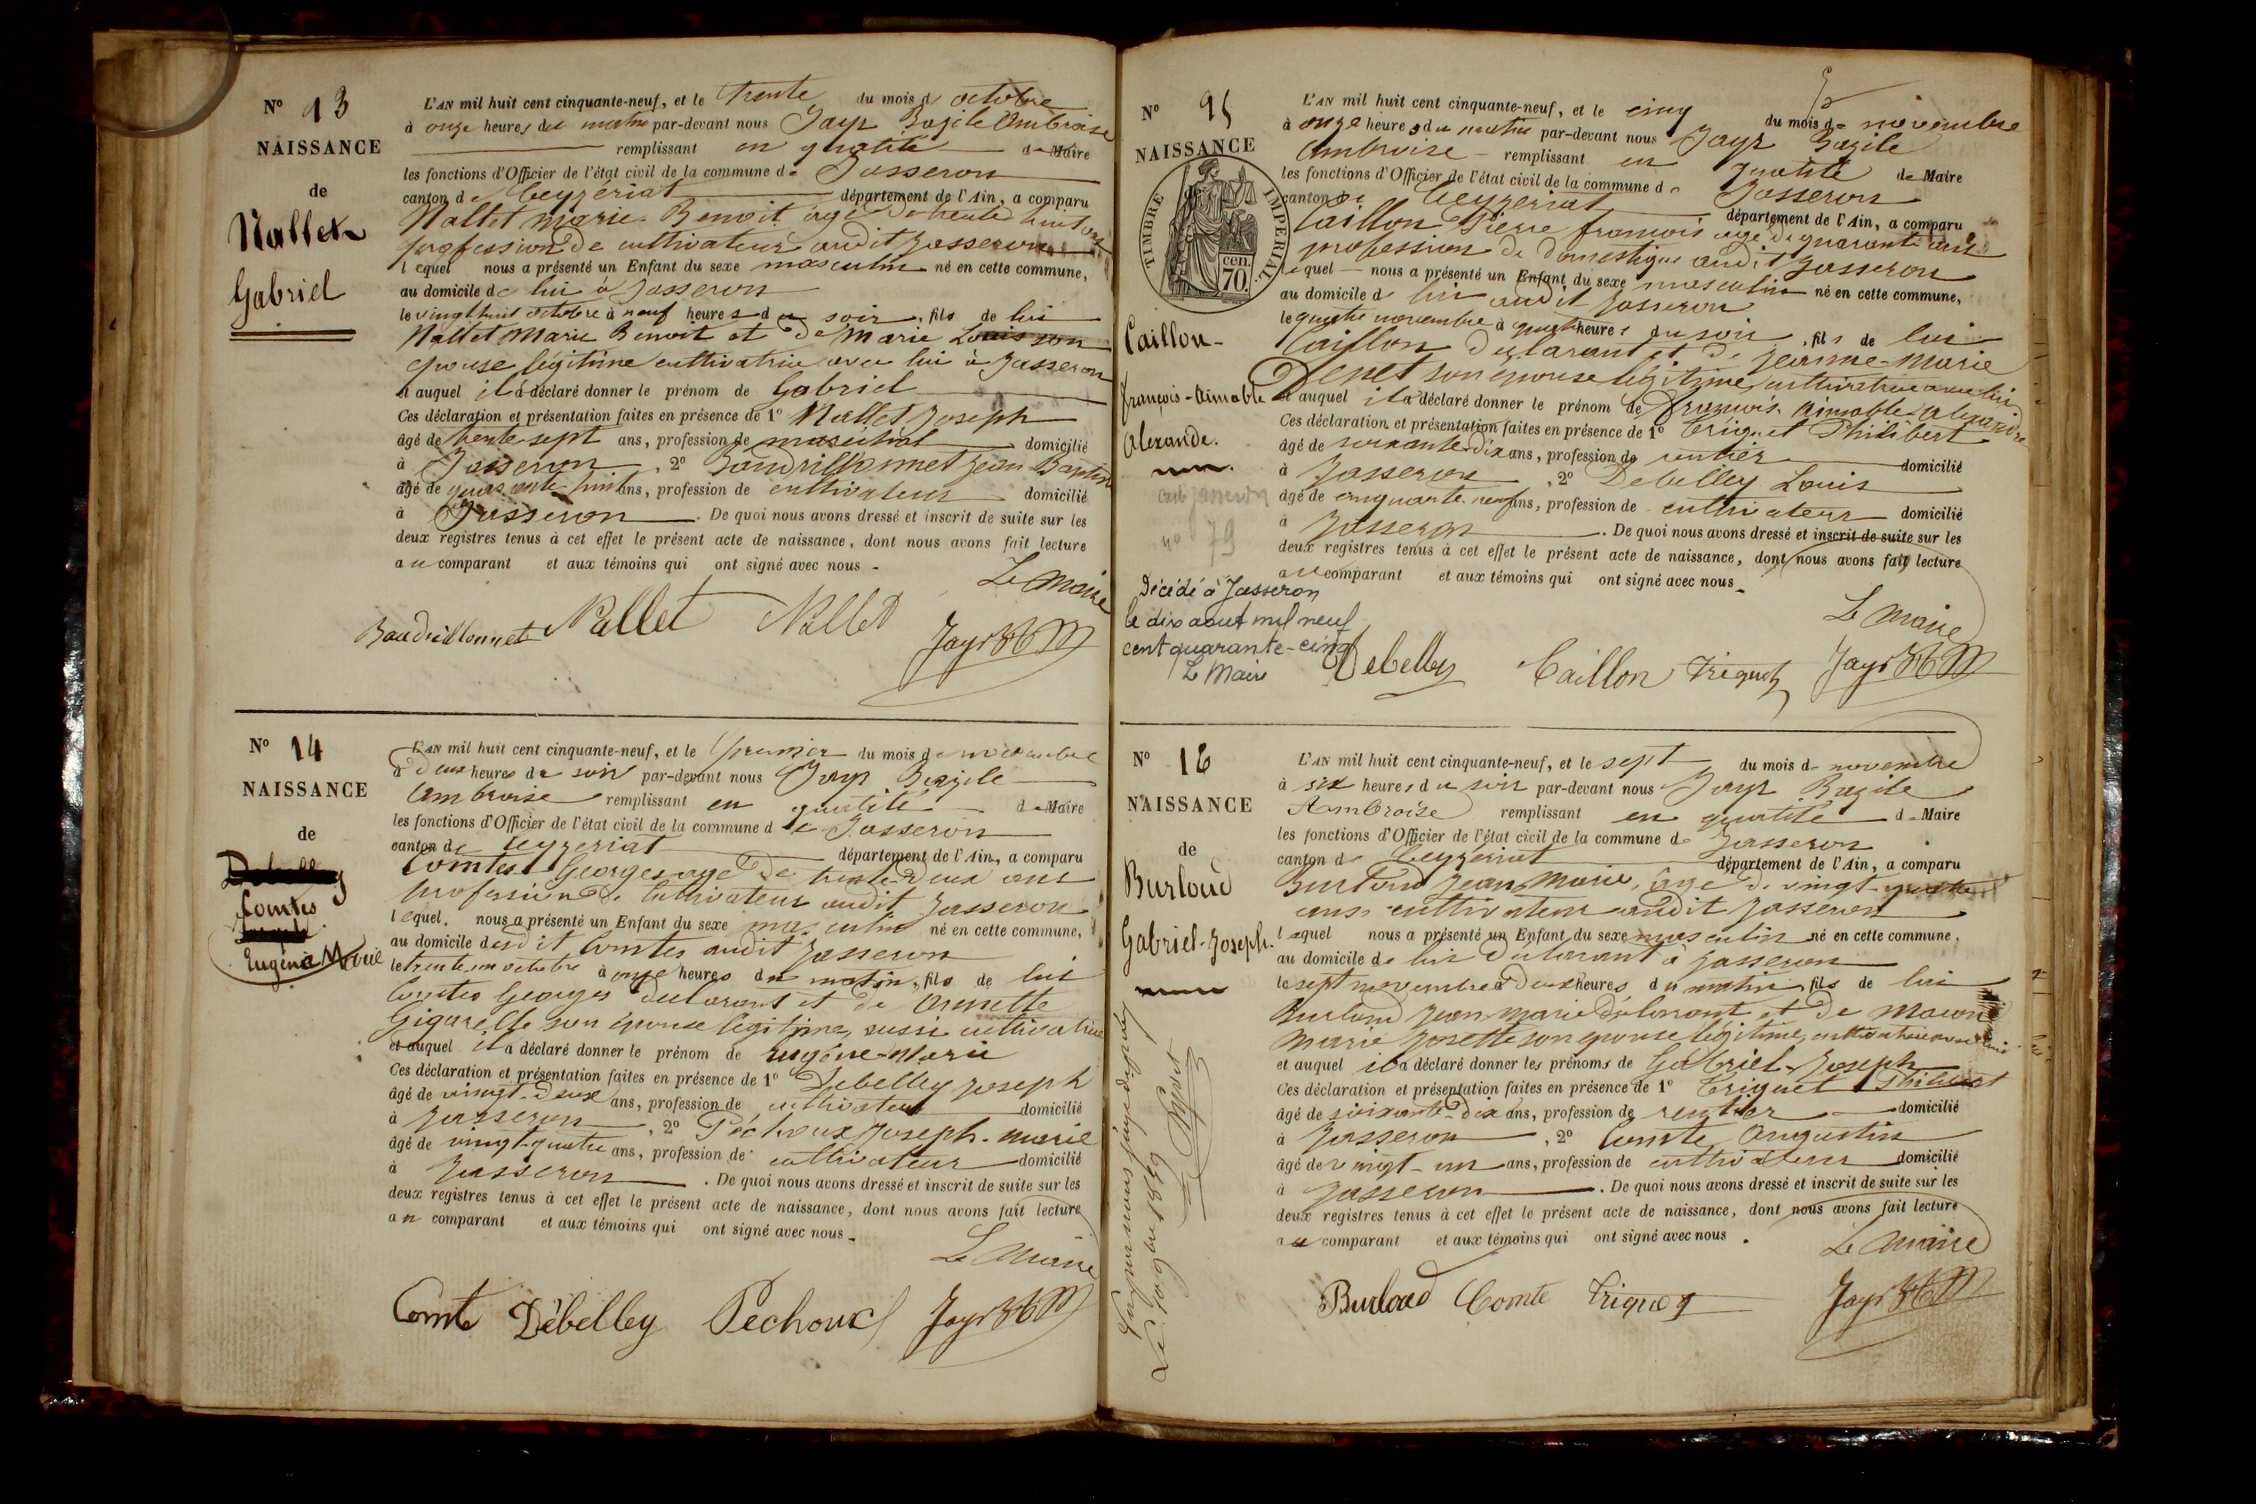 N° 13
NAISSANCE
de
Nallet
Gabriel
L'AN mil huit cent cinquante-neuf, et le trente du mois d octobre
à onze heures du matin par-devant nous Jayr Bazile Ambroise
remplissant en qualité de Maire
les fonctions d'Officier de l'état civil de la commune de Jasseron
canton de Ceyzériat département de l'Ain, a comparu
Nallet Marie Benoit âgé de trente huit ans
profession de cultivateur audit Jasseron
lequel nous a présenté un Enfant du sexe masculin né en cette commune,
au domicile de lui à Jasseron
le vingt huit octobre à neuf heures du soir, fils de lui
Nallet Marie Benoit et de Marie Louis son
epouse légitime cultivatrice avec lui à Jasseron
et auquel il a déclaré donner le prénom de Gabriel
Ces déclaration et présentation faites en présence de 1° Nallet Joseph
âgé de trente sept ans, profession de maréchal domicilié
à Jasseron, 2° Baudrillonnet Jean Baptiste
âgé de quarante huit ans, profession de cultivateur domicilié
à Jasseron. De quoi nous avons dressé et inscrit de suite sur les
deux registres tenus à cet effet le présent acte de naissance, dont nous avons fait lecture
au comparant et aux témoins qui ont signé avec nous
Le Maire
Baudrillonnet Nallet Nallet Jayr
N° 14
NAISSANCE
de
Comtes
Eugène Marie
L'AN mil huit cent cinquante-neuf, et le premier du mois de novembre
à deux heures de soir par-devant nous Jayr Bazile
Ambroise remplissant en qualité de Maire
les fonctions d'Officier de l'état civil de la commune de Jasseron
canton de Ceyzeriat département de l'Ain, a comparu
Comtes Georges agé de trente deux ans
profession de cultivateur audit Jasseron
lequel nous a présenté un Enfant du sexe masculin né en cette commune,
au domicile dudit Comtes audit Jasseron
le trente un octobre à onze heures du matin, fils de lui
Comtes Georges declarant et de
son épouse légitime aussi cultivatrice
et auquel il a déclaré donner le prénom de eugène-Marie
Ces déclaration et présentation faites en présence de 1° Debelley Joseph
âgé de vingt-deux ans, profession de cultivateur domicilié
à Jasseron, 2° Péchoux Joseph-Marie
âgé de vingt-quatre ans, profession de cultivateur domicilié
à Jasseron. De quoi nous avons dressé et inscrit de suite sur les
deux registres tenus à cet effet le présent acte de naissance, dont nous avons fait lecture
au comparant et aux témoins qui ont signé avec nous
Le Maire
Comte Débelley Péchoux Jayr
N° 15
NAISSANCE
de
TIMBRE IMPÉRIAL
70 cen.
Caillon
françois-Aimable
Alexandre.
n° 79
Décédé à Jasseron
le dix aout mil neuf
cent quarante-cinq
Le Maire
L'AN mil huit cent cinquante-neuf, et le cinq du mois de novembre
à onze heures du matin par-devant nous Jayr Bazile
Ambroise remplissant en qualité de Maire
les fonctions d'Officier de l'état civil de la commune de Jasseron
canton de Ceyzeriat département de l'Ain, a comparu
Caillon Pierre françois agé de quarante ans
profession de domestique audit Jasseron
lequel nous a présenté un Enfant du sexe masculin né en cette commune,
au domicile d lui audit Jasseron
le quatre novembre à quatre heures du soir, fils de lui
Caillon declarant et de Jeanne-Marie
son epouse légitime cultivatrice avec lui
et auquel il a déclaré donner le prénom de françois Aimable Alexandre
Ces déclaration et présentation faites en présence de 1° Triquet Philibert
âgé de soixante-dix ans, profession de rentier domicilié
à Jasseron, 2° Debelley Louis
âgé de cinquante-neuf ans, profession de cultivateur domicilié
à Jasseron. De quoi nous avons dressé et inscrit de suite sur les
deux registres tenus à cet effet le présent acte de naissance, dont nous avons fait lecture
au comparant et aux témoins qui ont signé avec nous
Le Maire
Debelley Caillon Triquet Jayr
N° 16
NAISSANCE
de
Burloud
Gabriel-Joseph.
L'AN mil huit cent cinquante-neuf, et le sept du mois de novembre
à six heures du soir par-devant nous Jayr Bazile
Ambroise remplissant en qualité de Maire
les fonctions d'Officier de l'état civil de la commune de Jasseron
canton de Ceyzeriat département de l'Ain, a comparu
Burloud Jean, Marie, âgé de vingt-quatre
ans cultivateur audit Jasseron
lequel nous a présenté un Enfant du sexe masculin né en cette commune,
au domicile de lui déclarant à Jasseron
le sept novembre à deux heures du matin, fils de lui
Burloud Jean-Marie déclarant et de
Marie Josette son epouse légitime, cultivatrice avec lui
et auquel il a déclaré donner les prénoms de Gabriel-Joseph
Ces déclaration et présentation faites en présence de 1° Triquet Philibert
âgé de soixante-dix ans, profession de rentier domicilié
à Jasseron, 2° Comte Augustin
âgé de vingt-un ans, profession de cultivateur domicilié
à Jasseron. De quoi nous avons dressé et inscrit de suite sur les
deux registres tenus à cet effet le présent acte de naissance, dont nous avons fait lecture
au comparant et aux témoins qui ont signé avec nous
Le Maire
Burloud Comte Triquet Jayr